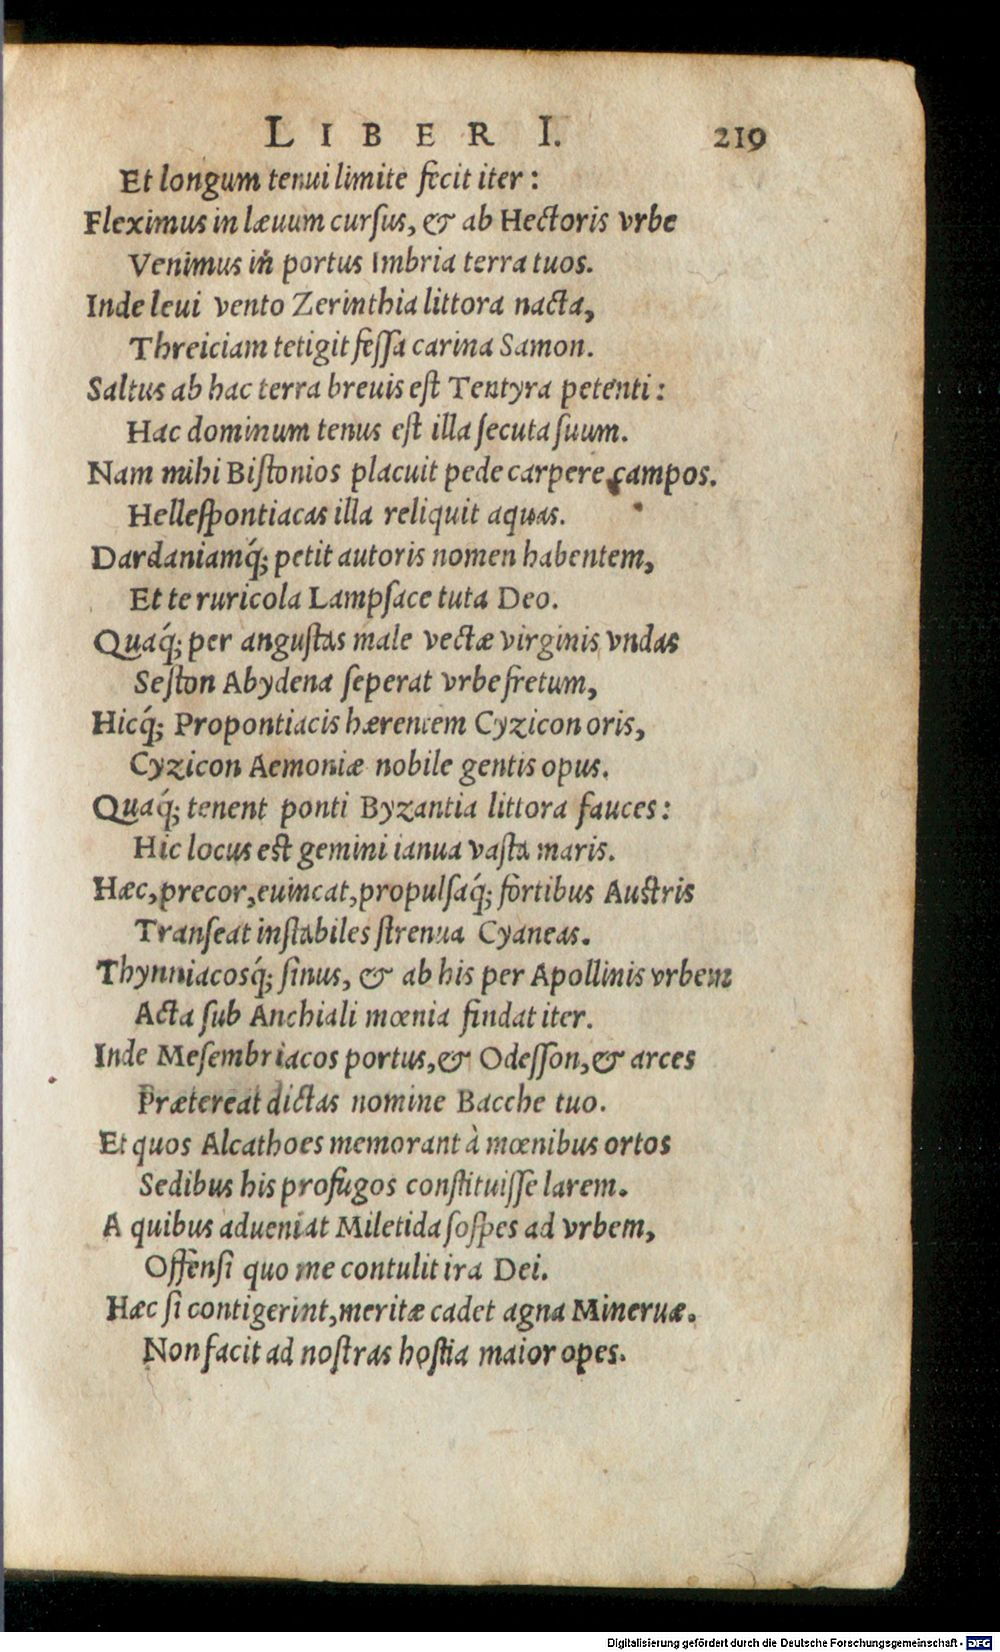 LIBER I. 219
Et longum tenui limite fecit iter:
Fleximus in læuum cursus, & ab Hectoris vrbe
Venimus in portus Imbria terra tuos.
Inde leui vento Zerinthia littora nacta,
Threiciam tetigit fessa carina Samon.
Saltus ab hac terra breuis est Tentyra petenti:
Hac dominum tenus est illa secuta suum.
Nam mihi Bistonios placuit pede carpere campos.
Hellespontiacas illa reliquit aquas.
Dardaniamq́; petit autoris nomen habentem,
Et te ruricola Lampsace tuta Deo.
Quaq́; per angustas male vectæ virginis vndas
Seston Abydena seperat vrbe fretum,
Hicq́; Propontiacis hærentem Cyzicon oris,
Cyzicon Aemoniæ nobile gentis opus.
Quaq́; tenent ponti Byzantia littora fauces:
Hic locus est gemini ianua vasta maris.
Hæc, precor, euincat, propulsaq́; fortibus Austris
Transeat instabiles strenua Cyaneas.
Thynniacosq́; sinus, & ab his per Apollinis vrbem
Acta sub Anchiali mœnia findat iter.
Inde Mesembriacos portus, & Odesson, & arces
Prætereat dictas nomine Bacche tuo.
Et quos Alcathoes memorant à mœnibus ortos
Sedibus his profugos constituisse larem.
A quibus adueniat Miletida sospes ad vrbem,
Offensi quo me contulit ira Dei.
Hæc si contigerint, meritæ cadet agna Mineruæ.
Non facit ad nostras hostia maior opes.
Digitalisierung gefördert durch die Deutsche Forschungsgemeinschaft - DFG